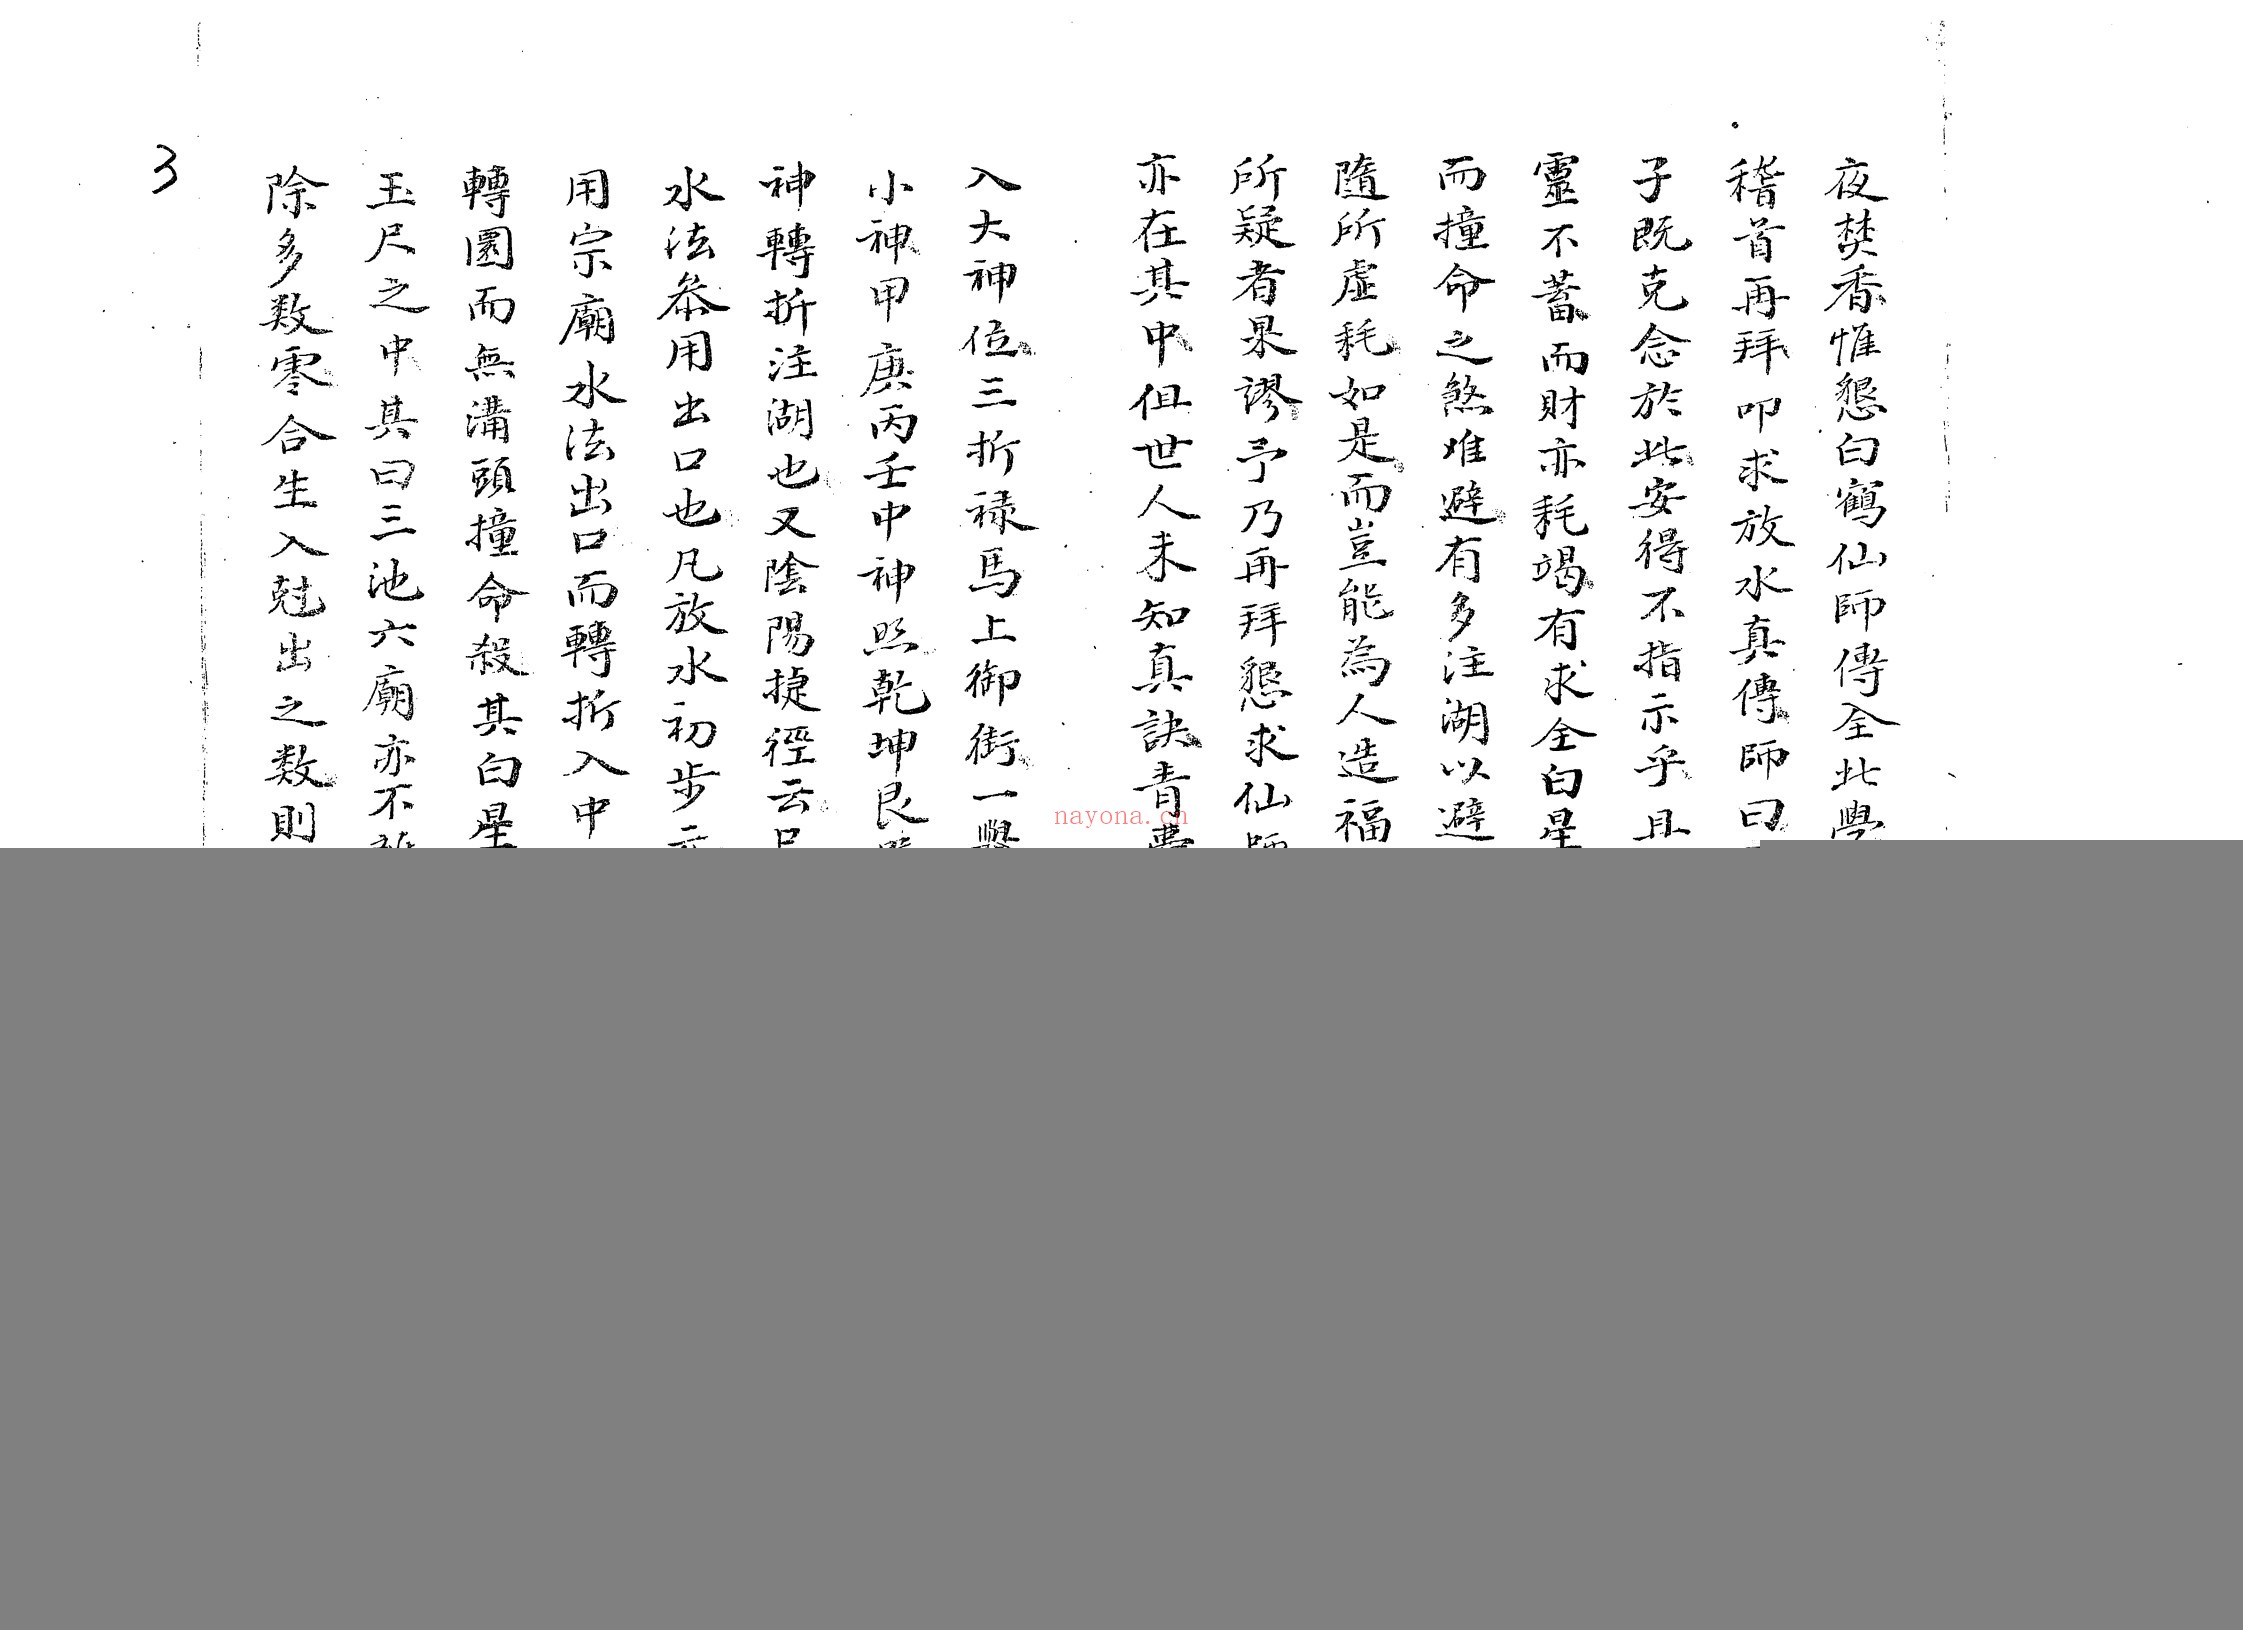 夜焚香惟懇白鶴仙師傳全此學
稽首再拜叩求放水真傳師曰
子既克念於此安得不指示乎且
靈不蓄而財亦耗竭有求全白星
而撞命之煞难避有多注湖以避
隨所虛耗如是而豈能為人造福
所疑者果謬予乃再拜懇求仙師
亦在其中但世人未知真訣青囊
入大神位三折禄馬上御街一舉
小神甲庚丙壬中神照乾坤艮
神轉折注湖也又陰陽捷徑云
水法叅用出口也凡放水初步
用宗廟水法出口而轉折入中
轉圜而無溝頭撞命殺其白星
玉尺之中其曰三池六廟亦不
除多数零合生入尅出之数則
3
nayona.cn